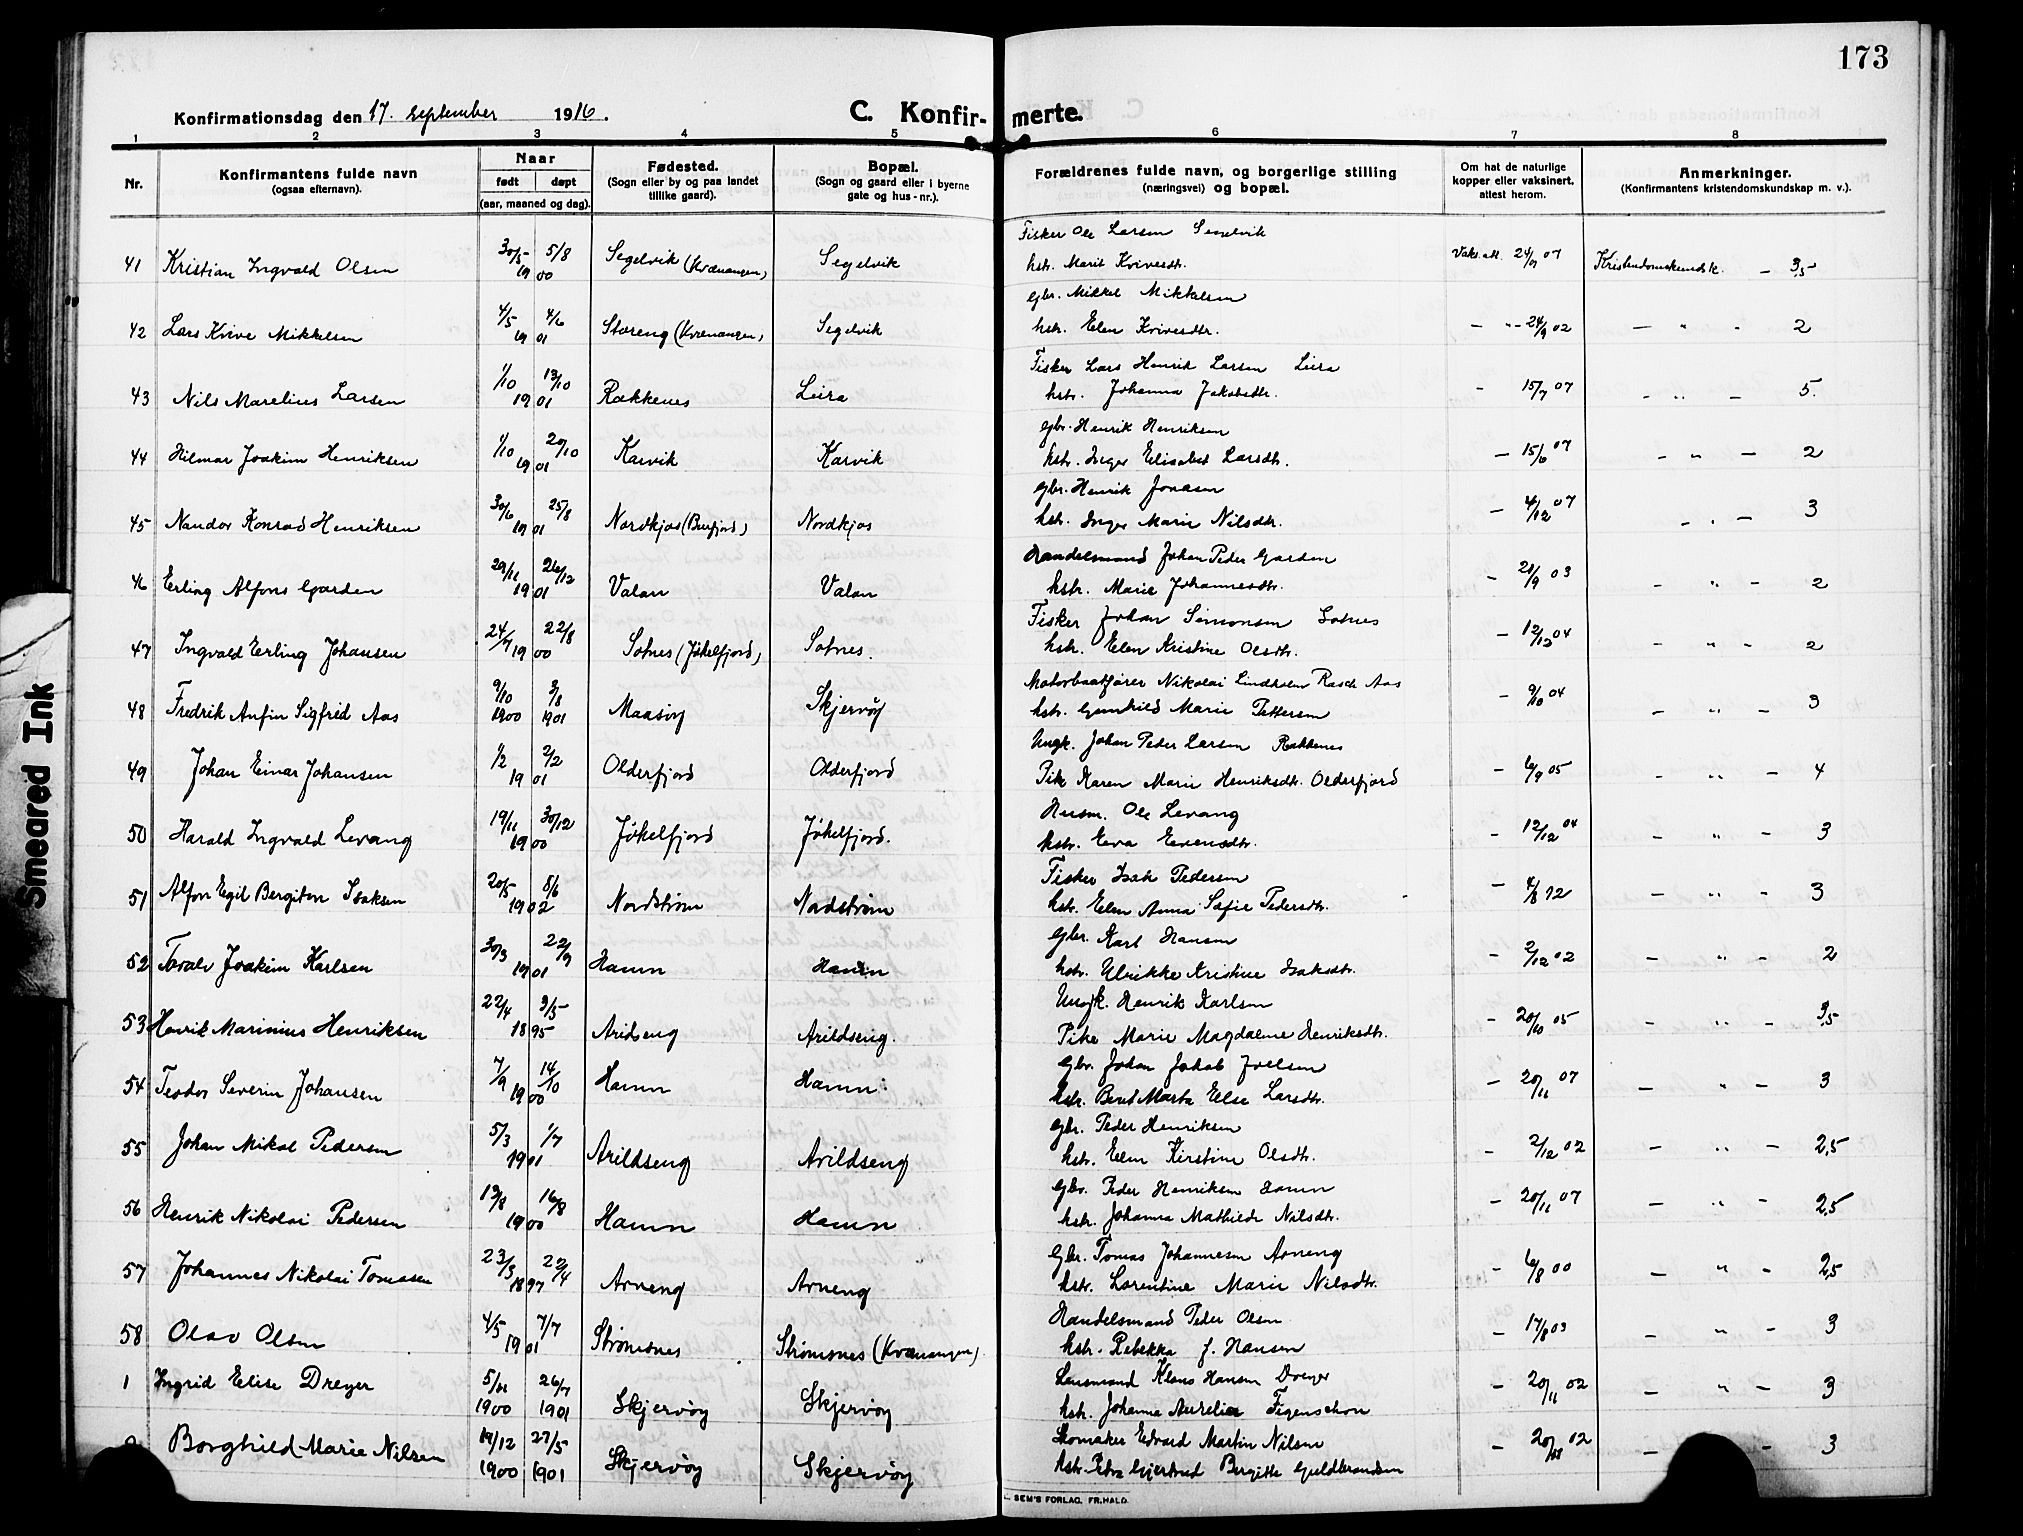 173
Konfirmationsdag den 17. september 1916.
C. Konfir- merte.
1 2 3 4 5 6 7 8
Nr.
Konfirmantens fulde navn
(ogsaa efternavn).
Naar
født døpt
(aar, maaned og dag).
Fødested.
(Sogn eller by og paa landet
tillike gaard).
Bopæl.
(Sogn og gaard eller i byerne
gate og hus-nr.).
Forældrenes fulde navn, og borgerlige stilling
(næringsvei) og bopæl.
Om hat de naturlige
kopper eller vaksinert.
attest herom.
Anmerkninger.
(Konfirmantens kristendomskundskap m. v.).
Fisker Ole Larsen Segelvik
41 Kristian Ingvald Olsen 30/5 5/8 1900 Segelvik (Kvænangen) Segelvik hstr. Marit Kivesdtr. Vaks.att. 07 Kristendomskundsk. - 3,5
gbr. Mikkel Mikkelsen
42 Lars Kvive Mikkelsen 4/5 4/6 1901 Storeng (Kvænangen) Segelvik hstr. Elen Kvivesdtr. - " - 24/9 02 - " - 2
Fisker Lars Henrik Larsen Leira
43 Nils Marelius Larsen 1/10 13/10 1901 Rækkenes Leira hstr. Johanna Jakobsdtr. - 15/7 07 - " - 5.
gbr. Henrik Henriksen
44 Hilmar Joakim Henriksen 1/10 20/10 1901 Karvik Karvik hstr. Inger Elisabet Larsdtr. - 15/6 07 - " - 2
gbr. Henrik Jonasen
45 Nandor Konrad Henriksen 30/6 25/8 1901 Nordkjos (Burfjord) Nordkjos hstr. Inger Marie Nilsdtr. - 4/12 07 - " - 3
Handelsmand Johan Peder Garden
46 Erling Alfons Garden 29/11 26/12 1901 Valan Valan hstr. Marie Johannesdtr. - 21/9 03 - " - 2
Fisker Johan Simonsen Sotnes
47 Ingvald Erling Johansen 24/7 22/8 1900 Sotnes (Jøkelfjord) Sotnes. hstr. Elen Kristine Olsdtr. - 12/12 04 - " - 2
Motorbaatfører Nikolai Lindholm Rasch Aas
48 Fredrik Anfin Sigfrid Aas 9/10 1900 3/8 1901 Maasøy Skjervøy hstr. Gunhild Marie Pettersen - 9/10 04 - " - 3
Ungk. Johan Peder Larsen Rækkenes
49 Johan Einar Johansen 1/2 2/2 1901 Olderfjord Olderfjord Pike Karen Marie Henriksdtr. Olderfjord - 6/9 05 - " - 4
Husm. Ole Levang
50 Harald Ingvald Levang 19/11 30/12 1900 Jøkelfjord Jøkelfjord. hstr. Eva Evensdtr. - 12/12 04 - " - 3
Fisker Isak Pedersen
51 Alfon Egil Bergiton Isaksen 20/5 8/6 1902 Nordstrøm Nordstrøm hstr. Elen Anna Sofie Pedersdtr. - 4/8 12 - " - 3
gbr. Karl Hansen
52 Toralv Joakim Karlsen 30/3 22/9 1901 Hamn Hamn hstr. Ulrikke Kristine Isaksdtr. - 2/12 02 - " - 2
Ungk. Henrik Karlsen
53 Henrik Marinius Henriksen 22/4 3/5 1895 Arildseng Arildseng. Pike Marie Magdalene Henriksdtr. - 20/10 05 - " - 3,5
gbr. Johan Jakob Joelsen
54 Teodor Severin Johansen 7/9 14/10 1900 Hamn Hamn hstr. Berit Marta Else Larsdtr. - 20/11 07 - " - 3
gbr. Peder Henriksen
55 Johan Mikal Pedersen 5/3 1/7 1901 Arildseng Arildseng hstr. Elen Kirstine Olsdtr. - 2/12 02 - " - 2,5
gbr. Peder Henriksen Hamn
56 Henrik Nikolai Pedersen 13/8 16/8 1900 Hamn Hamn hstr. Johanna Mathilde Nilsdtr. - 20/11 07 - " - 2,5
gbr. Tomas Johannesen Arneng
57 Johannes Nikolai Tomasen 23/3 22/4 1897 Arneng Arneng hstr. Lorentine Marie Nilsdtr. - 6/8 00 - " - 2,5
Handelsmand Peder Olsen
58 Olav Olsen 4/5 7/7 1901 Strømsnes Strømsnes (Kvænangen) hstr. Rebekka f. Hansen - 17/8 03 - " - 3
Lensmand Klaus Hansen Dreyer
1 Ingrid Elise Dreyer 5/11 1900 26/7 1901 Skjervøy Skjervøy hstr. Johanna Aurelia Figenschou - 20/11 02 - " - 3
Skomaker Edvard Martin Nilsen
Borghild Marie Nilsen 19/12 1900 27/5 1901 Skjervøy Skjervøy hstr. Petra Gjertrud Bergitte Guldbrandsen - 20/11 02 - - 3
SEM'S FORLAG, FR.HALD.
Smeared Ink